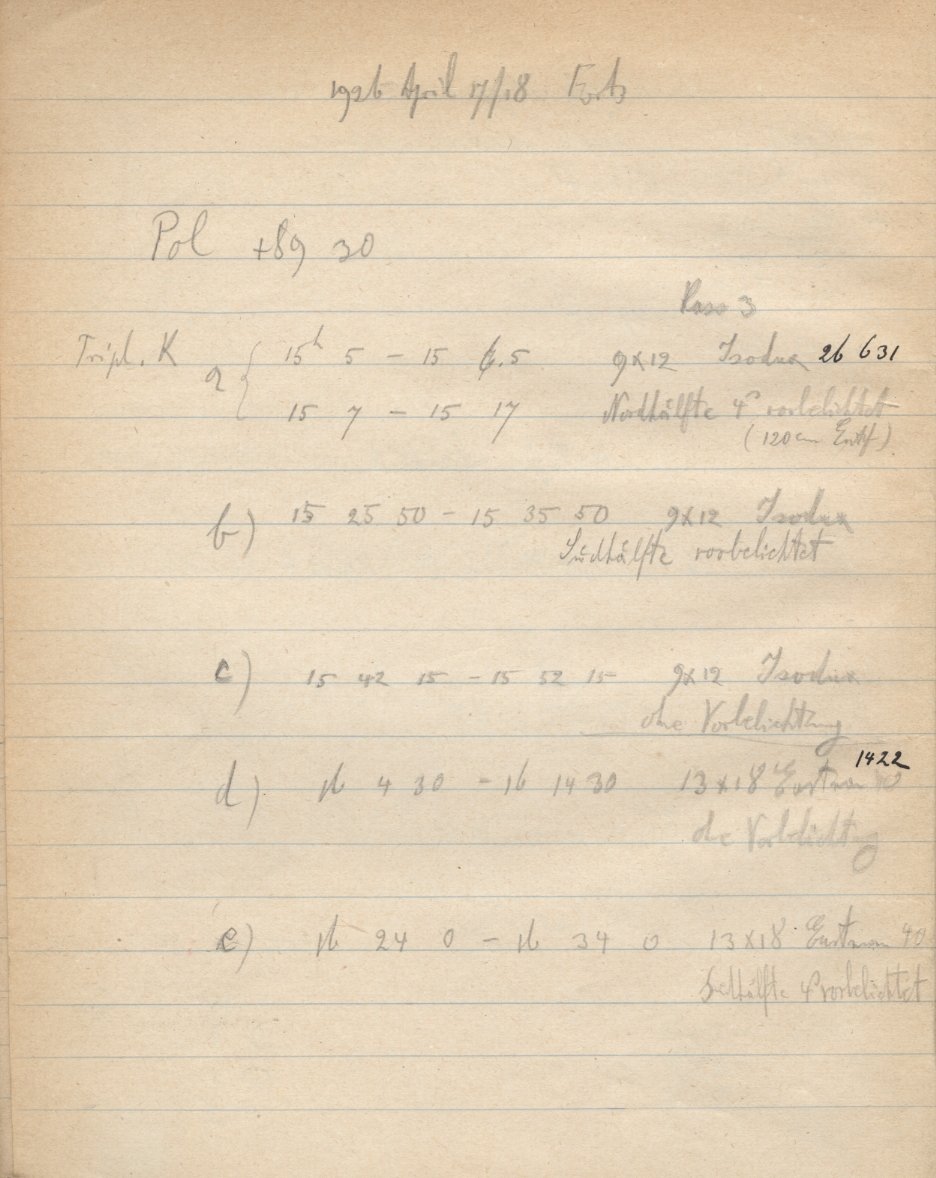 1926 April 17/18 Forts
Pol +89 30
Kass 3
Tripl. K a { 15h 5 – 15 6.5 9x12 Isodux 26 631
15 7 – 15 17 Nordhälfte 4s vorbelichtet
(120cm Entf)
b) 15 25 50 – 15 35 50 9x12 Isodux
Südhälfte vorbelichtet
c) 15 42 15 – 15 52 15 9x12 Isodux
ohne Vorbelichtung
1422
d) 16 4 30 – 16 14 30 13x18 Eastman 40
ohne Vorbelichtung
e) 16 24 0 – 16 34 0 13x18 Eastman 40
Südhälfte 4s vorbelichtet